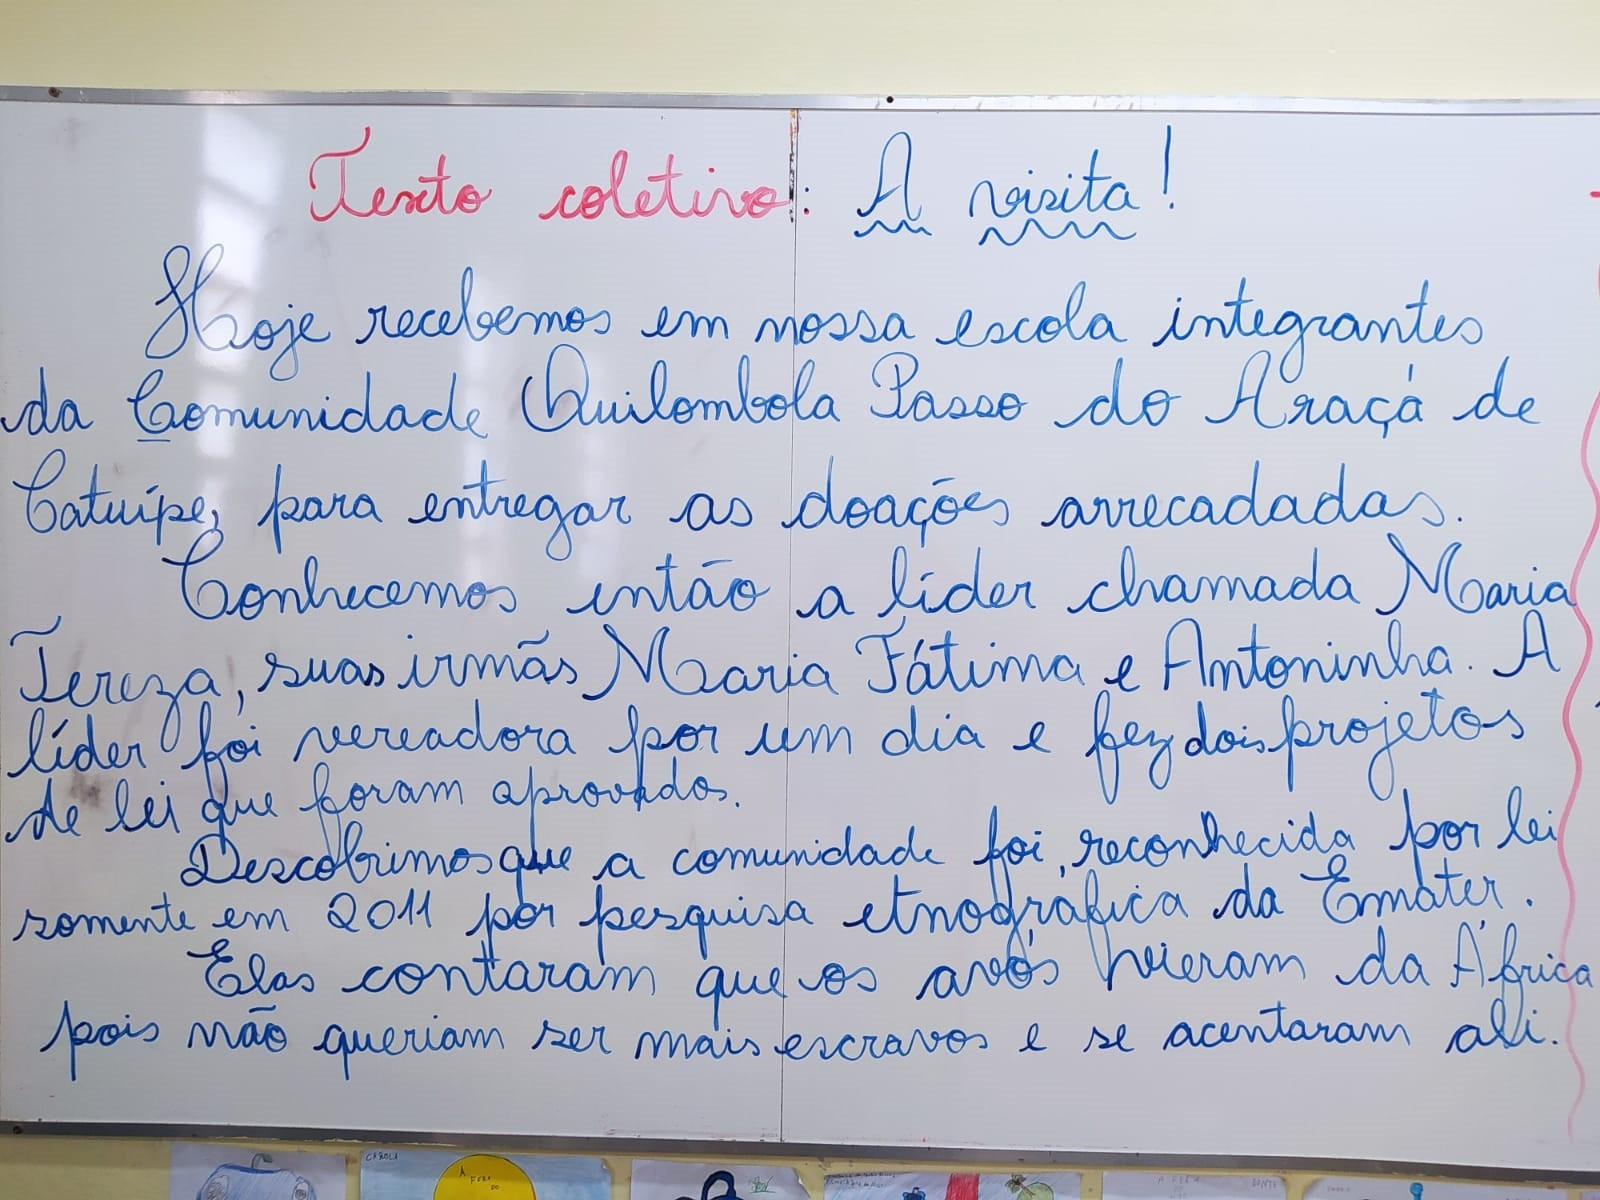 Texto coletivo: A visita!
Hoje recebemos em nossa escola integrantes
da Comunidade Quilombola Passo do Araçá de
Catuípe, para entregar as doações arrecadadas.
Conhecemos então a líder chamada Maria
Tereza, suas irmãs Maria Fátima e Antoninha. A
líder foi vereadora por um dia e fez dois projetos
de lei que foram aprovados.
Descobrimos que a comunidade foi reconhecida por lei
somente em 2011 por pesquisa etnográfica da Emater.
Elas contaram que os avós vieram da África
pois não queriam ser mais escravos e se acentaram ali.
CAROLA
A
FORA
DO